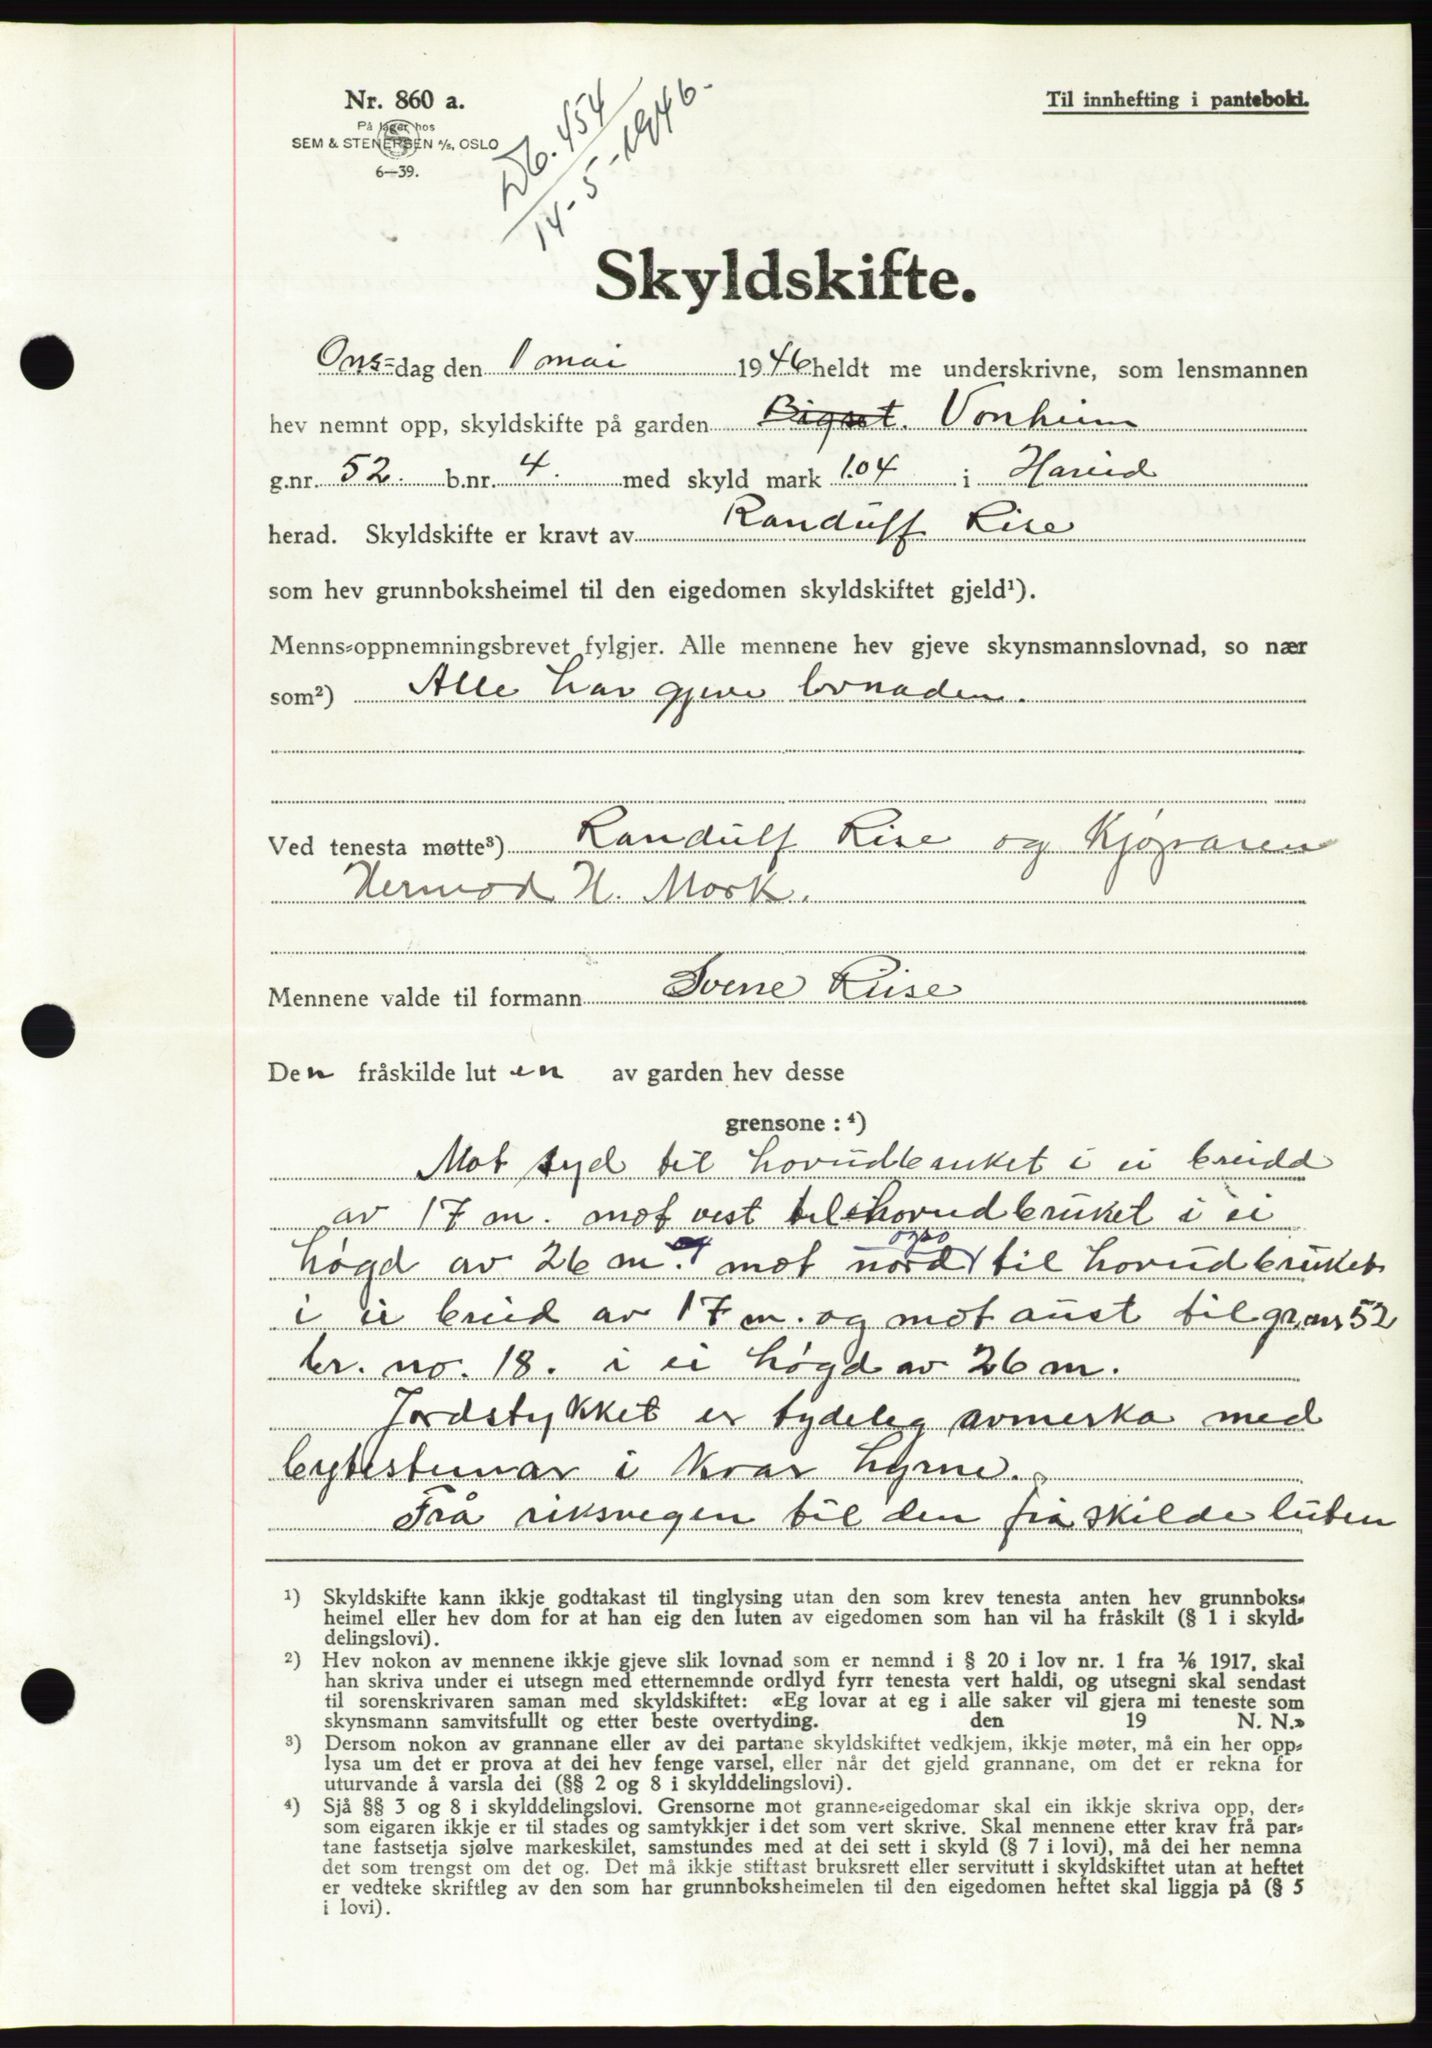 Nr. 860 a.
På lager hos
SEM & STENERSEN A/S, OSLO
6—39.
Db. 454
14-5-1946.
Til innhefting i panteboki.
Skyldskifte.
Ons-dag den 1 mai 1946 heldt me underskrivne, som lensmannen
hev nemnt opp, skyldskifte på garden Bigset. Vonheim
g.nr. 52. b.nr. 4. med skyld mark 1.04 i Hareid
herad. Skyldskifte er kravt av Randulf Rise
som hev grunnboksheimel til den eigedomen skyldskiftet gjeld¹).
Menns-oppnemningsbrevet fylgjer. Alle mennene hev gjeve skynsmannslovnad, so nær
som²) Alle har gjeve lovnaden.
Ved tenesta møtte³) Randulf Rise og Kjøparen
Hermod H. Mork.
Mennene valde til formann Sverre Riise
Den fråskilde luten av garden hev desse
grensone: ⁴)
Mot syd til hovudbruket i ei breidd
av 17 m. mot vest til hovudbruket i ei
også
høgd av 26 m. mot nord til hovudbruket
i ei breid av 17 m. og mot aust til gr. nr 52
br. no. 18. i ei høgd av 26 m.
Jordstykket er tydeleg avmerka med
bytesteinar i kvar hyrne.
Frå riksvegen til den fråskilde luten
¹) Skyldskifte kann ikkje godtakast til tinglysing utan den som krev tenesta anten hev grunnboks-
heimel eller hev dom for at han eig den luten av eigedomen som han vil ha fråskilt (§ 1 i skyld-
delingslovi).
²) Hev nokon av mennene ikkje gjeve slik lovnad som er nemnd i § 20 i lov nr. 1 fra 1/6 1917, skal
han skriva under ei utsegn med etternemnde ordlyd fyrr tenesta vert haldi, og utsegni skal sendast
til sorenskrivaren saman med skyldskiftet: «Eg lovar at eg i alle saker vil gjera mi teneste som
skynsmann samvitsfullt og etter beste overtyding. den 19 N. N.»
³) Dersom nokon av grannane eller av dei partane skyldskiftet vedkjem, ikkje møter, må ein her opp-
lysa um det er prova at dei hev fenge varsel, eller når det gjeld grannane, om det er rekna for
uturvande å varsla dei (§§ 2 og 8 i skylddelingslovi).
⁴) Sjå §§ 3 og 8 i skylddelingslovi. Grensorne mot granne-eigedomar skal ein ikkje skriva opp, der-
som eigaren ikkje er til stades og samtykkjer i det som vert skrive. Skal mennene etter krav frå par-
tane fastsetja sjølve markeskilet, samstundes med at dei sett i skyld (§ 7 i lovi), må dei her nemna
det som trengst om det og. Det må ikkje stiftast bruksrett eller servitutt i skyldskiftet utan at heftet
er vedteke skriftleg av den som har grunnboksheimelen til den eigedomen heftet skal liggja på (§ 5
i lovi).